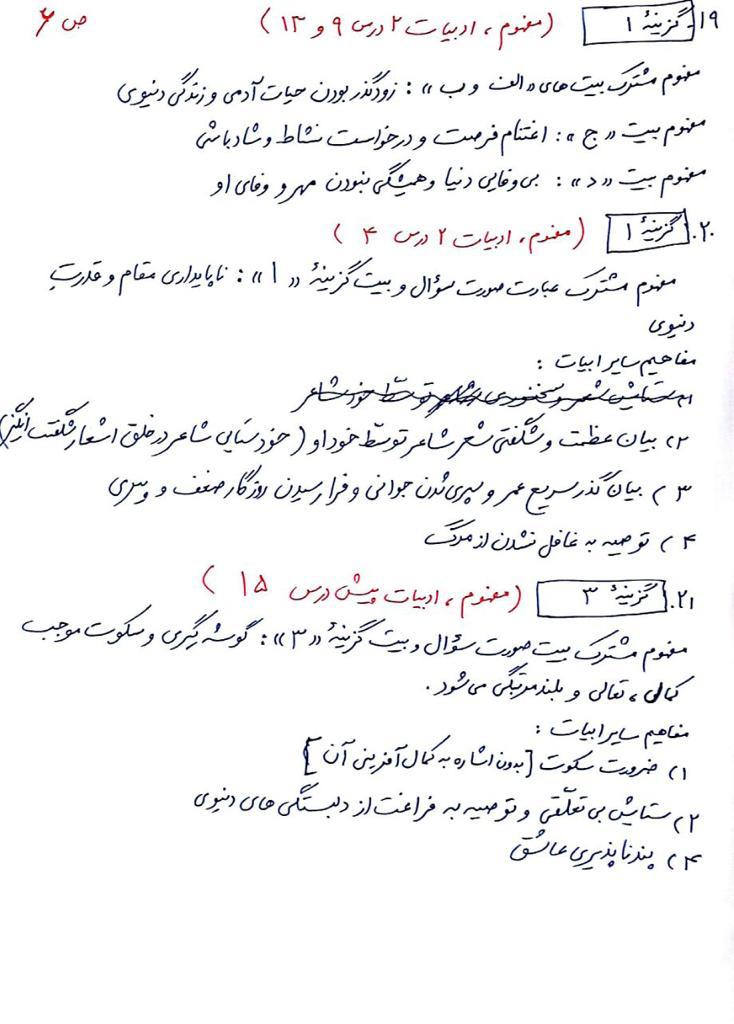 ۱۹. گزینهٔ ۱ (مفهوم، ادبیات ۲ درس ۹ و ۱۳) ص ۶
مفهوم مشترک بیت های «الف و ب»: زودگذر بودن حیات آدمی و زندگی دنیوی
مفهوم بیت «ج»: اغتنام فرصت و درخواست نشاط و شادباشی
مفهوم بیت «د»: بی وفایی دنیا و همیشگی نبودن مهر و وفای او
۲۰. گزینهٔ ۱ (مفهوم، ادبیات ۲ درس ۴)
مفهوم مشترک عبارت صورت سؤال و بیت گزینهٔ «۱»: ناپایداری مقام و قدرتِ
دنیوی
مفاهیم سایر ابیات:
۲) بیان عظمت و شگفتی شعر شاعر توسّط خود او (خودستایی شاعر در خلق اشعار شگفت انگیز)
۳) بیان گذر سریع عمر و سپری شدن جوانی و فرارسیدن روزگار ضعف و پیری
۴) توصیه به غافل نشدن از مرگ
۲۱. گزینهٔ ۳ (مفهوم، ادبیات پیش درس ۱۵)
مفهوم مشترک بیت صورت سؤال و بیت گزینهٔ «۳»: گوشه گیری و سکوت موجب
کمال، تعالی و بلندمرتبگی می شود.
مفاهیم سایر ابیات:
۱) ضرورت سکوت [بدون اشاره به کمال آفرینی آن]
۲) ستایش بی تعلّقی و توصیه به فراغت از دلبستگی های دنیوی
۴) پندناپذیری عاشق